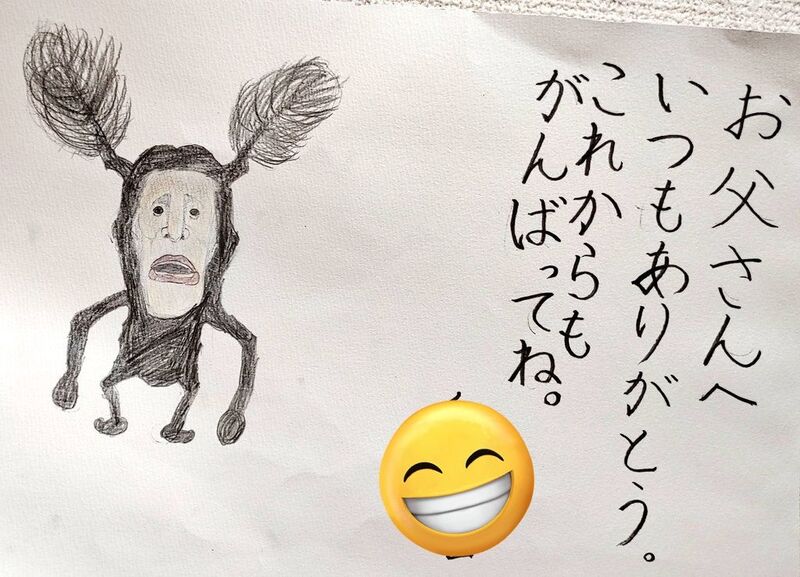 お父さんへ
いつもありがとう。
これからも
がんばってね。